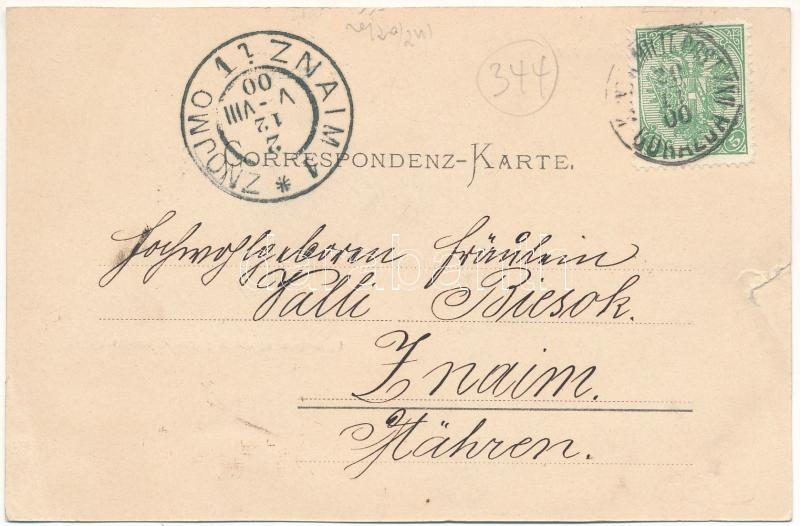 344
ZNAIM 1 * ZNOJMO 1
2
12
V-VIII
00
MILIT. POST
GORAŽDA
00
5
CORRESPONDENZ-KARTE.
Hochwohlgeboren Fräulein
Valli Biesok.
Znaim.
Mähren.
darabanth